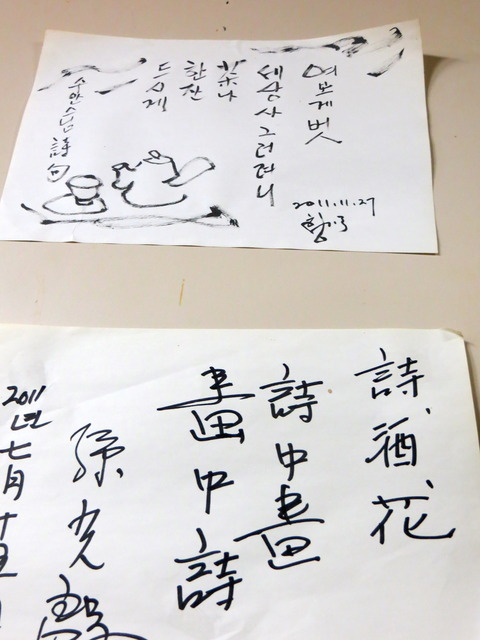 여보게 벗
세상사 그러려니
茶나
한잔
드시게
수안스님 詩句
2011.11.27
詩、酒、花
詩中畵
畵中詩
孫光
2011년 七月十五日